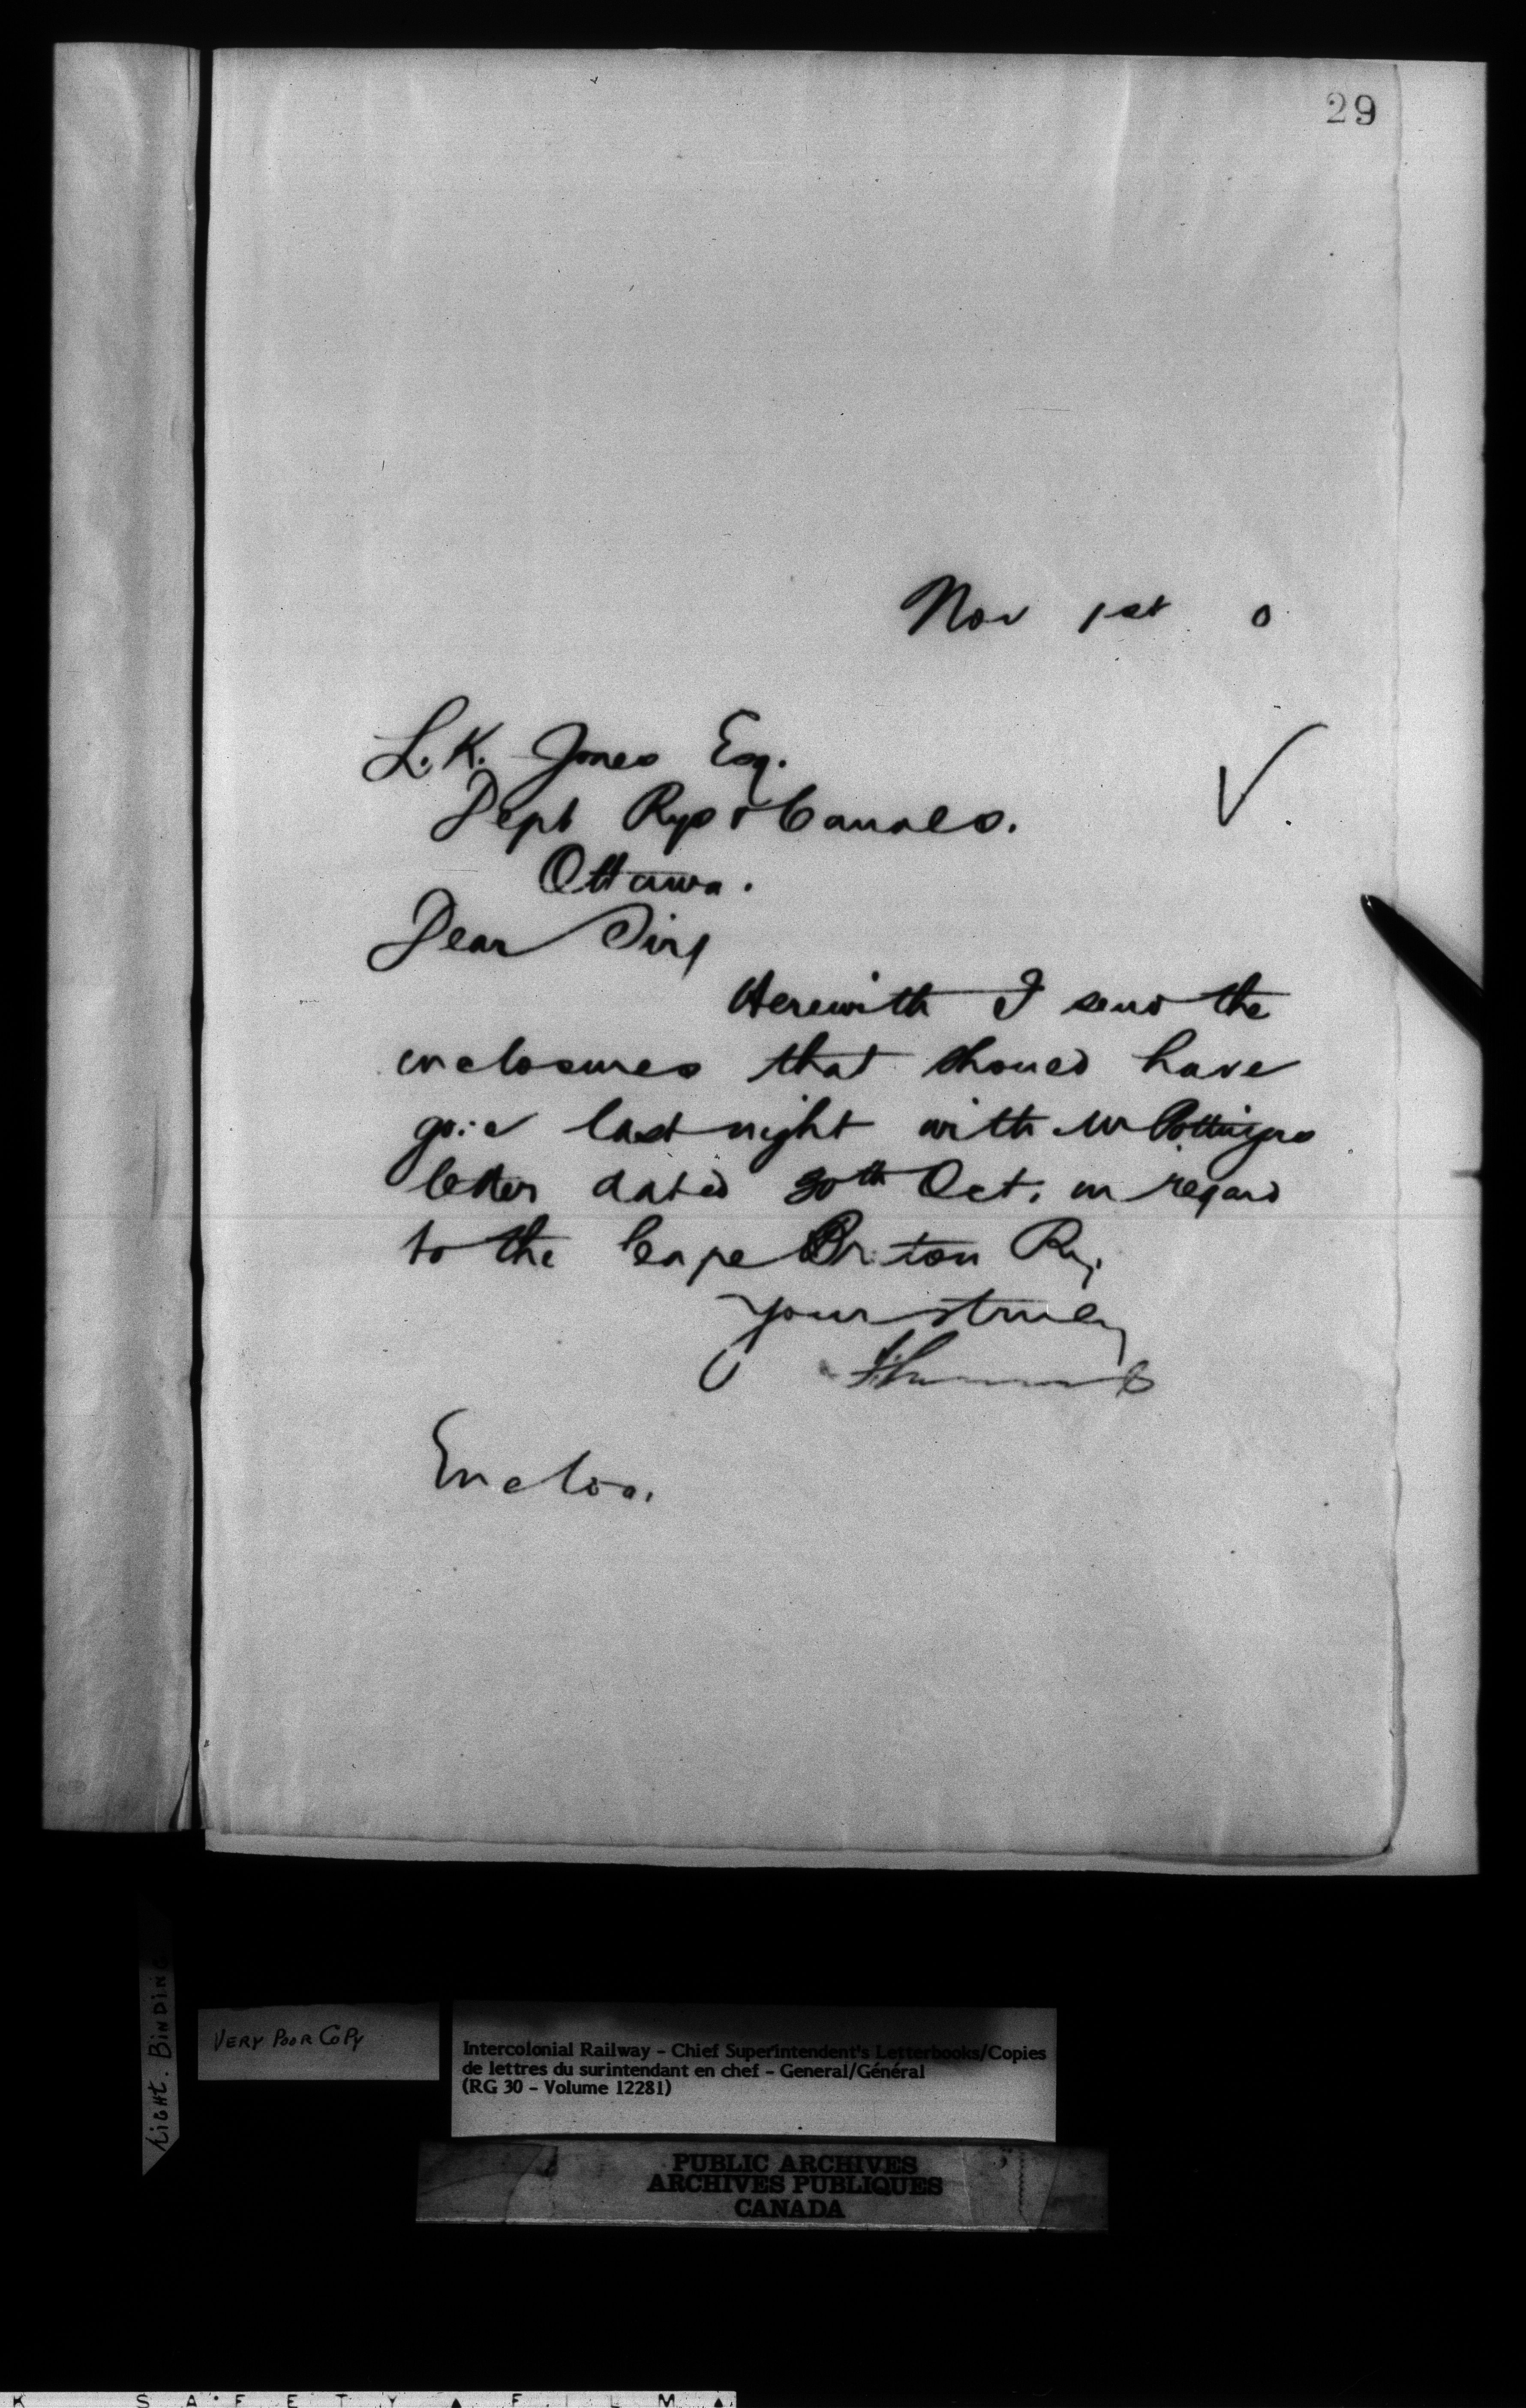 29
Nov 1st 0
L. K. Jones Esq.
Dept Rys & Canals.
Ottawa.
Dear Sir,
Herewith I send the
enclosures that should have
gone last night with Mr Pottingers
letter dated 30th Oct. in regard
to the Cape Briton Ry.
Yours truly
Enclos.
LIGHT. BINDING
VERY POOR COPY
Intercolonial Railway – Chief Superintendent's Letterbooks/Copies
de lettres du surintendant en chef – General/Général
(RG 30 – Volume 12281)
PUBLIC ARCHIVES
ARCHIVES PUBLIQUES
CANADA
K SAFETY ▲ FILM ▲